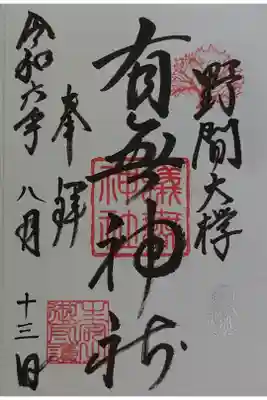 野間大欅
有無神社
奉拝
令和六年八月十三日